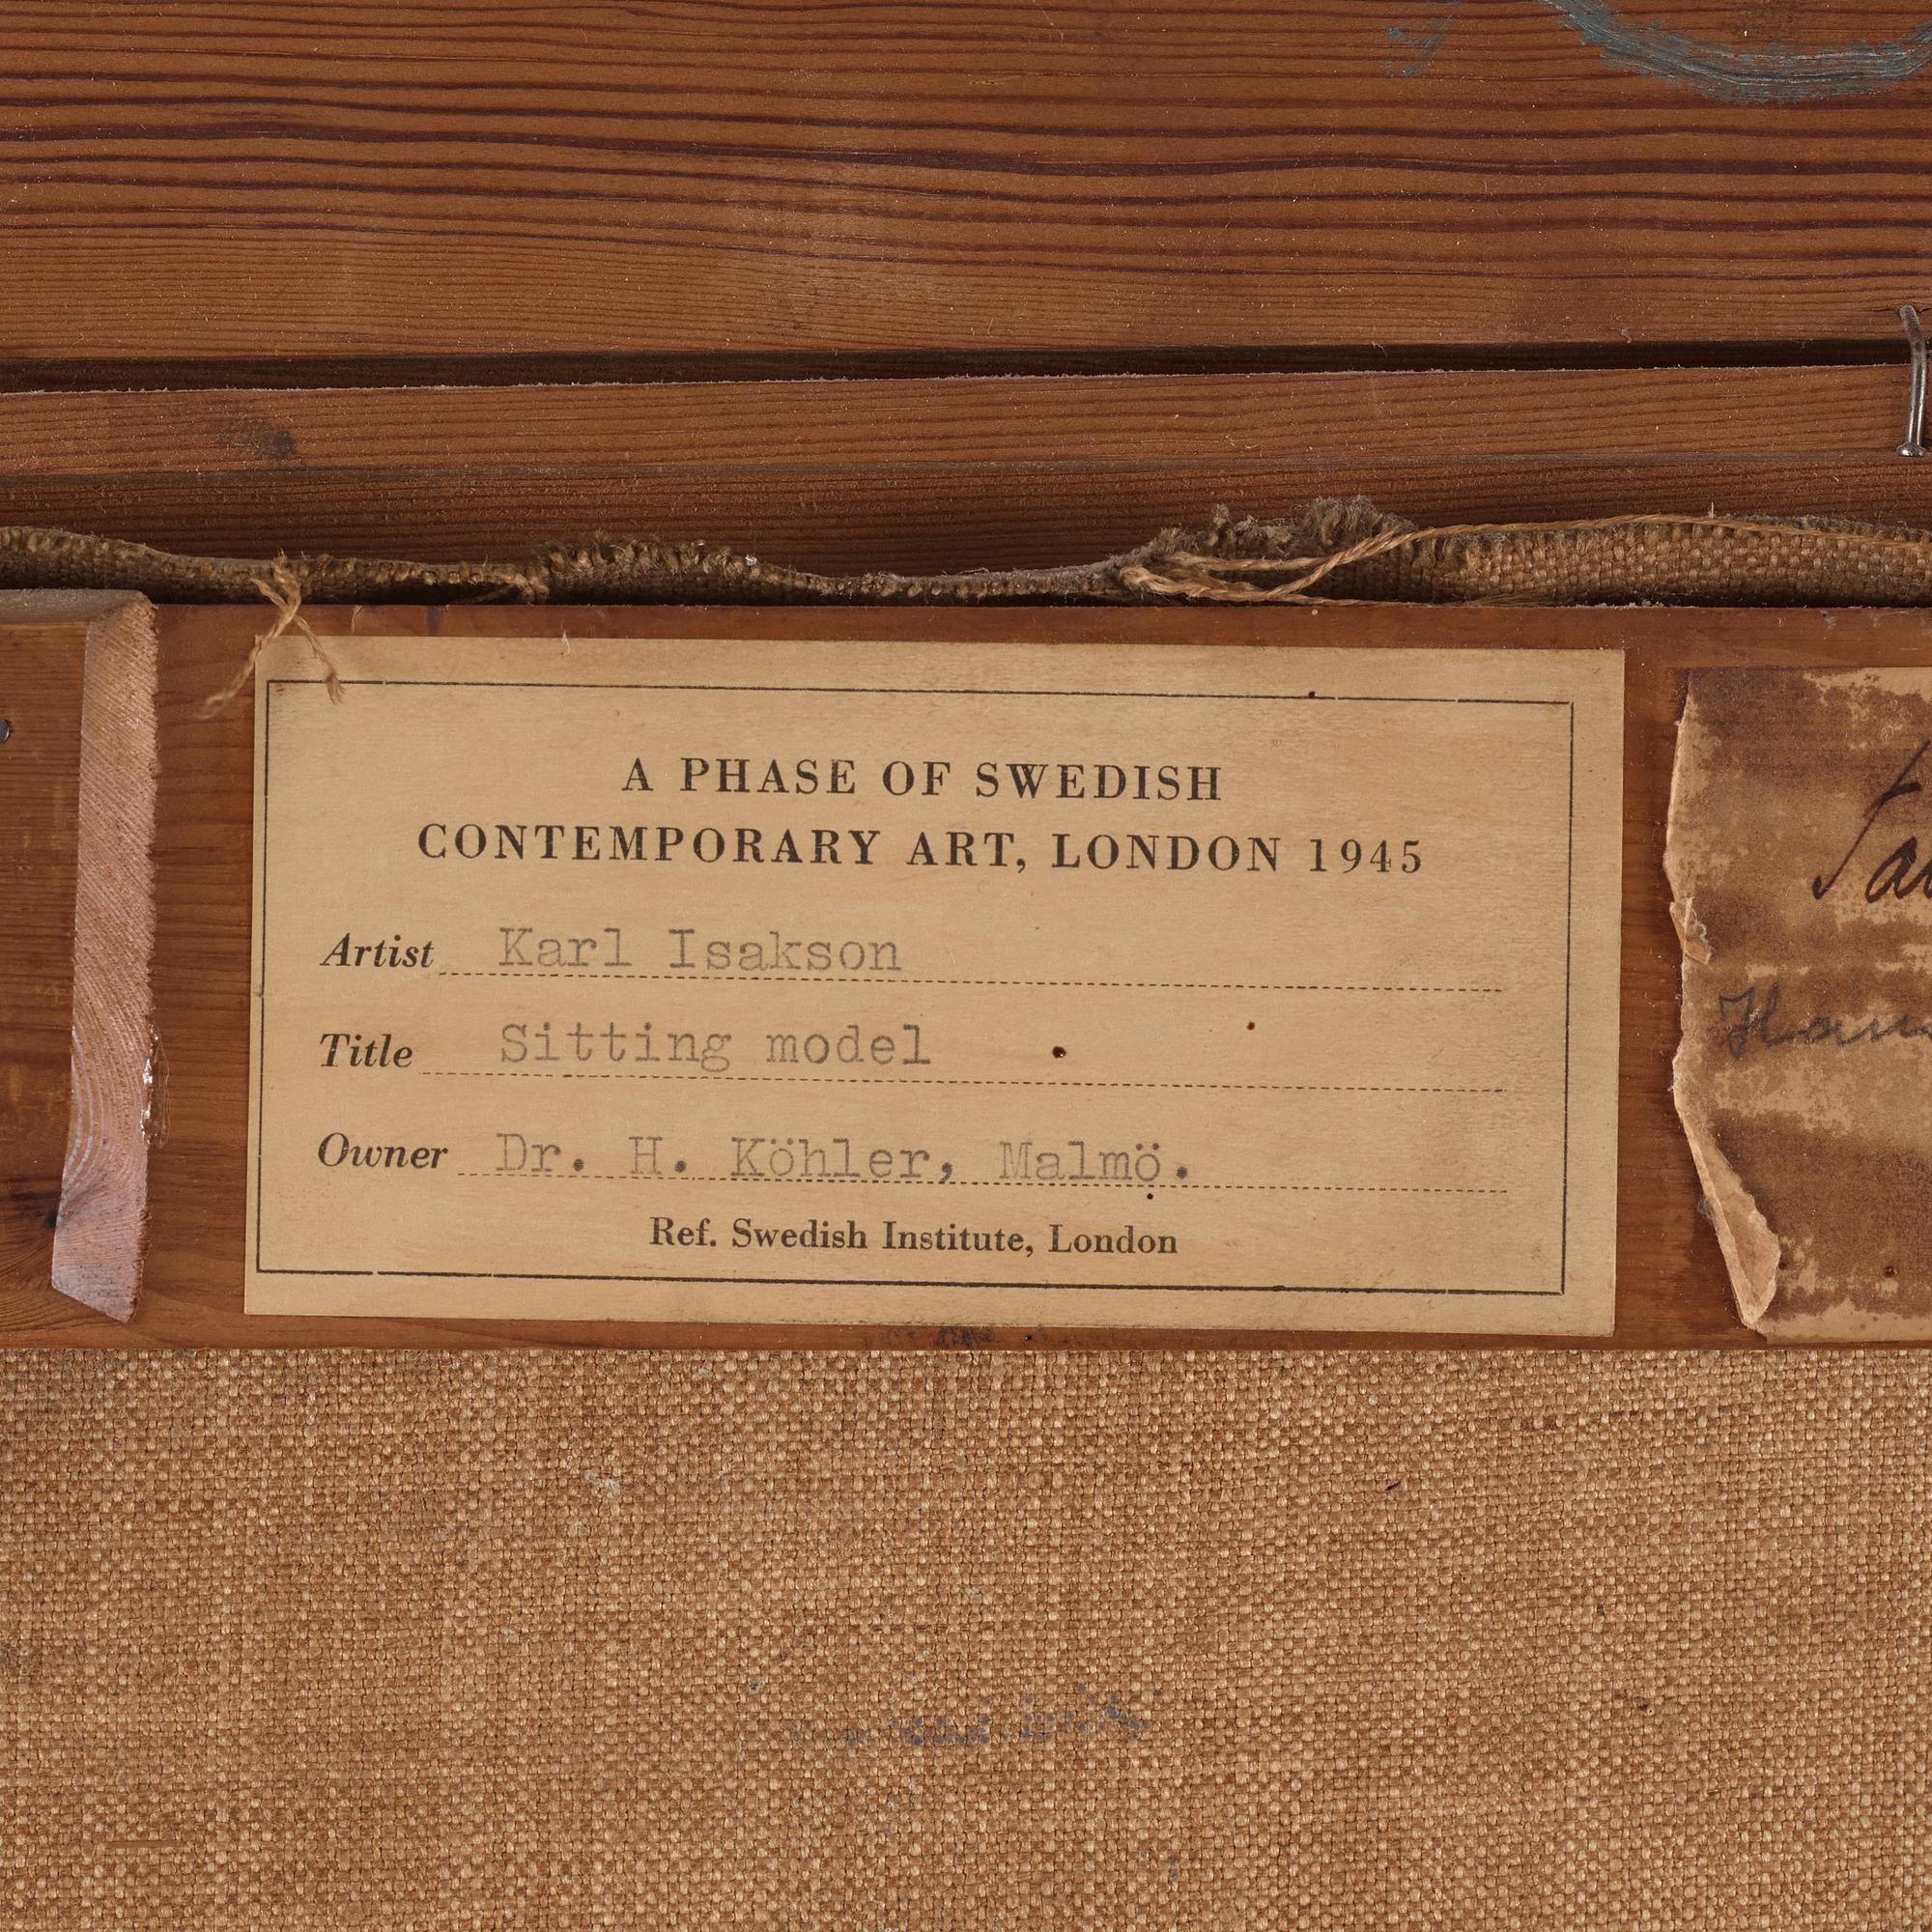 A PHASE OF SWEDISH
CONTEMPORARY ART, LONDON 1945
Artist Karl Isakson
Title Sitting model
Owner Dr. H. Köhler, Malmö.
Ref. Swedish Institute, London